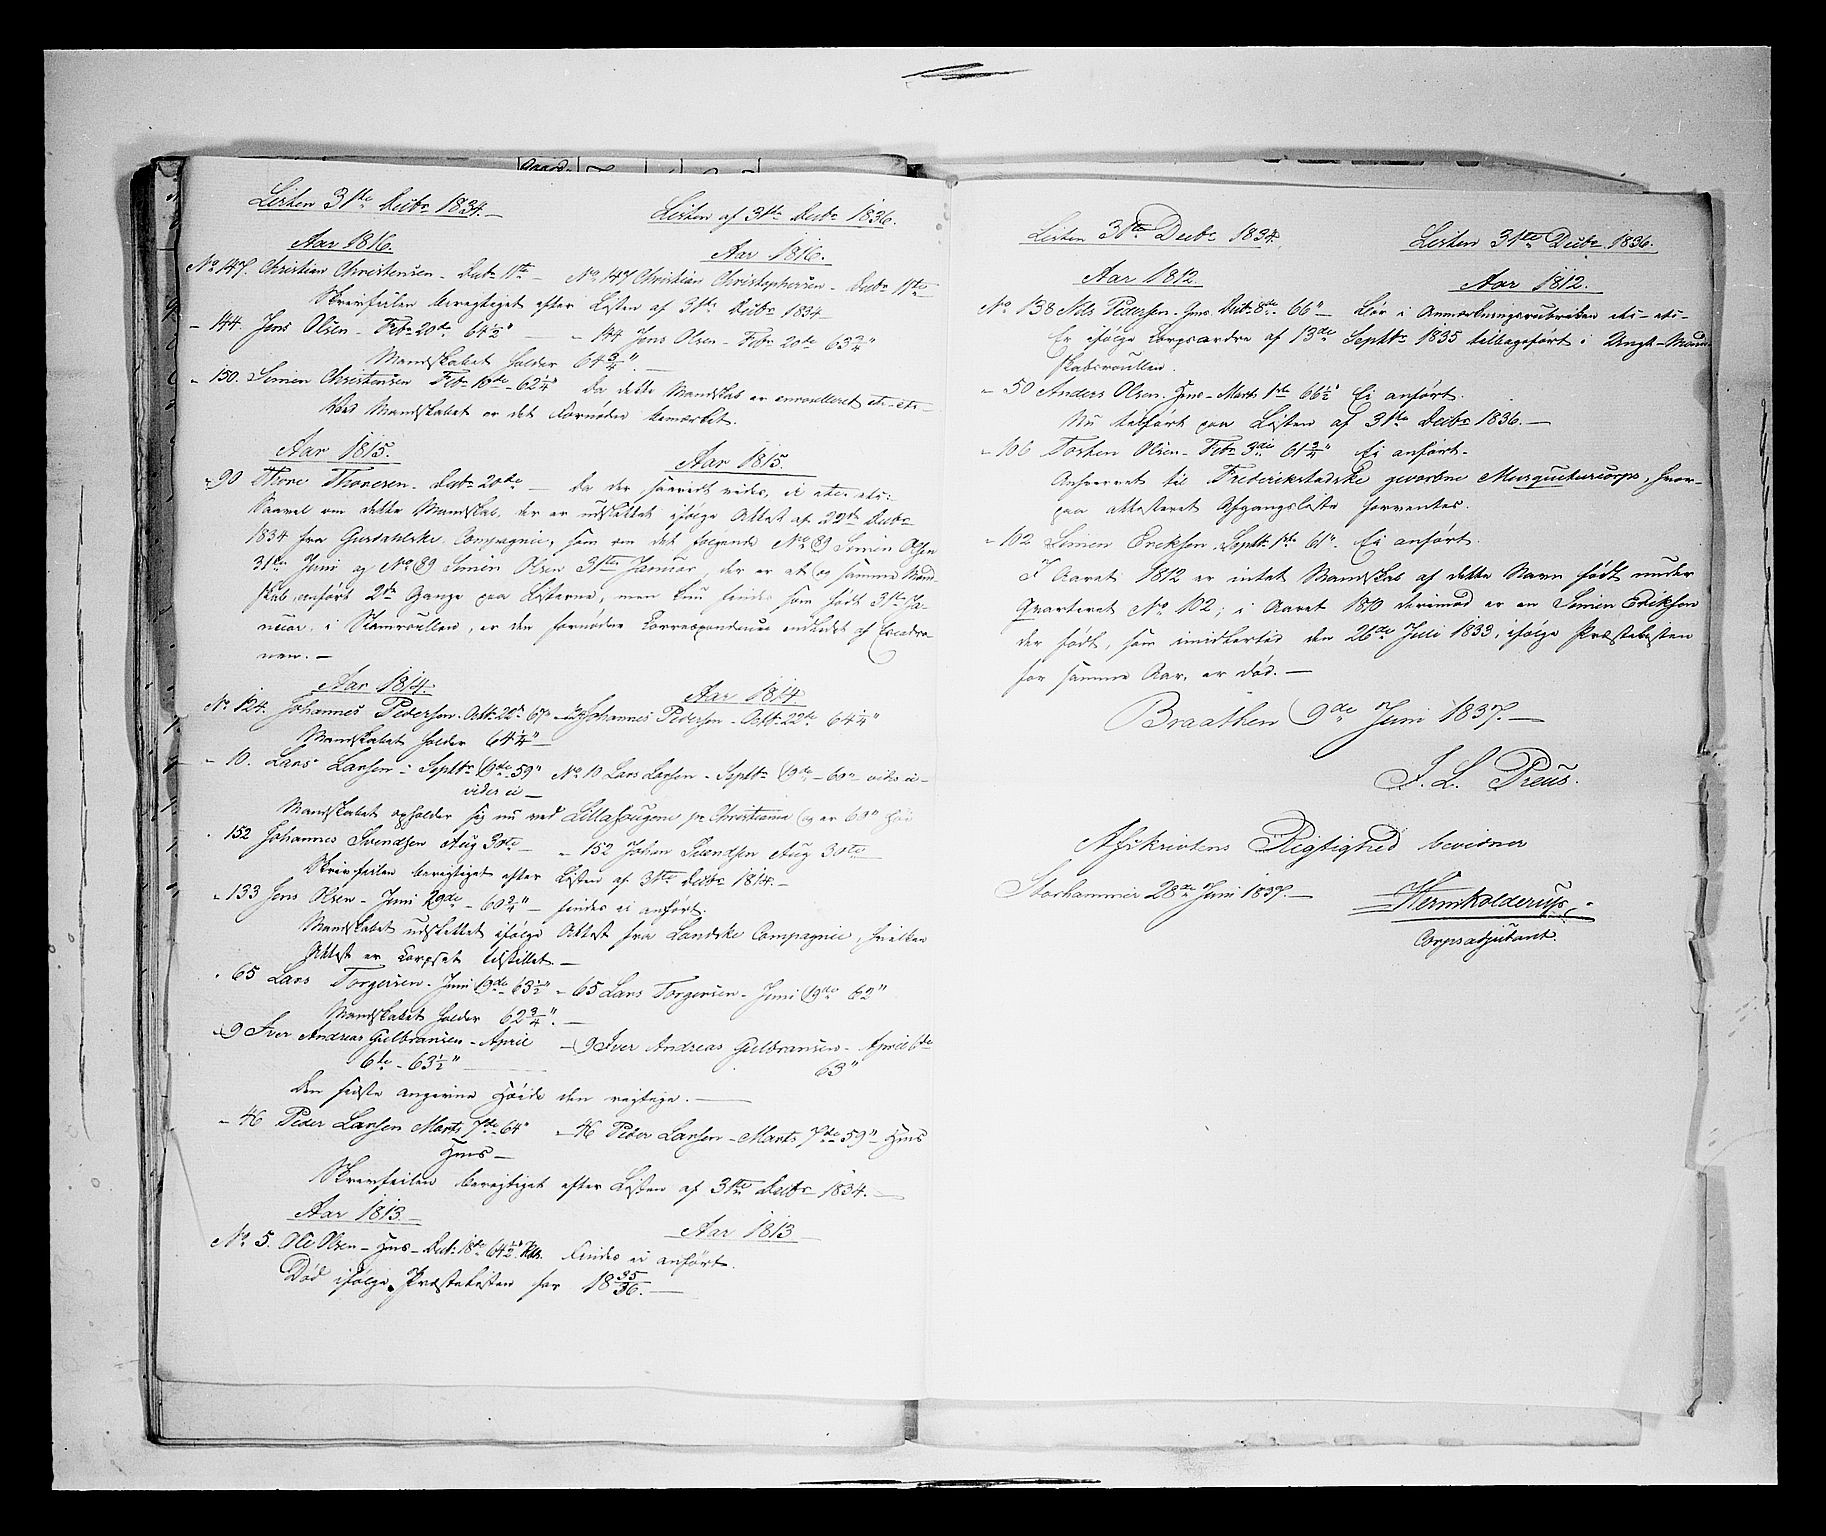 Listen 31te Decbr 1834.
Listen af 31te Decbr 1836.
Aar 1816.
Aar 1816.
No 147. Christian Christensen - Decbr 11te - No 147 Christian Christophersen - Decbr 11te
Skrivfeilen berigtiget efter Listen af 31te Decbr 1834
- 144. Jens Olsen - Febr 20de 64½" - 144 Jens Olsen - Febr 20de 63¾"
Mandskabet holder 64¾".
- 150. Simen Christensen Febr 10de - 62¼" Da dette Mandskab er enroulleret etc - etc -
Ved Mandskabet er det fornødne bemærket.
Aar 1815.
Aar 1815.
- 90 Thore Thoresen. Decbr 20de - Da der saavidt vides, ei etc. etc:
Saavel om dette Mandskab, der er udslettet ifølge Attest af 29de Decbr
1834 fra Guldahlske Compagnie, som om det følgende No 89 Simen Olsen
31te Juni og No 89 Simen Olsen 31te Januar, der er et og samme Mand-
skab, anført 2de Gange paa Listerne, men kun findes som født 31te Ja-
nuar i Stamroullen, er den fornødne Correspondence indledet af Escadro-
nen. -
Aar 1814.
Aar 1814
No 124. Johannes Pedersen. Octbr 22de 67" - 124 Johannes Pedersen - Octbr 22de 64¼"
Mandskabet holder 64¼"
- 10. Lars Larsen - Septbr 19de 59" No 10 Lars Larsen - Septbr 19de - 60" vides ei -
vides ei -
Mandskabet opholder sig nu ved Christiania og er 60"
- 152 Johannes Svendsen Aug 30te - - 152 Johan Svendsen Aug 30te
Skrivfeilen berigtiget efter Listen af 31te Decbr 1814. -
- 133 Jens Olsen - Juni 29de - 60¾" - findes ei anført.
Mandskabet udslettet ifølge Attest fra Landske Compagnie, hvilken
Attest er Corpset tilstillet. -
- 65 Lars Torgersen - Juni 19de 63½" - 65 Lars Torgersen - Juni 19de 62"
Mandskabet holder 62¾". -
- 9 Iver Andreas Gulbransen - April - 9 Iver Andreas Gulbransen - April 6te
6te - 63½"
63"
Den sidste angivne Høide den rigtige. -
- 46 Peder Larsen Marts 7de - 64" - 46 Peder Larsen - Marts 7de 59" Huus
Huus -
Skrivfeilen berigtiget efter Listen af 31te Decbr 1834. -
Aar 1813.
Aar 1813
No 5. Ole Olsen - Huus - Decbr 18de 64½" Findes ei anført.
Død ifølge Præstelisten for 1835/36. -
Listen 31te Decbr 1834.
Listen 31te Decbr 1836.
Aar 1812.
Aar 1812.
No 138 Nils Pedersen. Huus Decbr 8de. 66" - Bør i Anmærkningsrubriken etc - etc -
Er ifølge Corpsordre af 13de Septbr 1835 tilbageført i Ungt-Mand-
skabsroullen.
- 50 Anders Olsen. Huus - Marts 1ste 66½" Ei anført.
Nu tilført paa Listen af 31te Decbr 1836. -
- 106 Torsten Olsen - Febr 3die 61¾" Ei anført.
Anhvervet til Frederikstadske gevorbne Musqueteercorps, hvor-
paa attesteret Afgangsliste forventes.
- 102 Simen Ericksen. Septbr 1ste 61". Ei anført.
I Aaret 1812 er intet Mandskab af dette Navn født under
Qvarteret No 102; i Aaret 1810 derimod er en Simen Erikson
der født, som imidlertid den 26de Juli 1833, ifølge Præstelisten
for samme Aar, er død. -
Braathen 9de Juni 1837. -
J. L. Preus.
Afskrivtens Rigtighed bevidner
Storhammer 28de Juni 1837. -
Hermkolderup
Corpsadjutant.